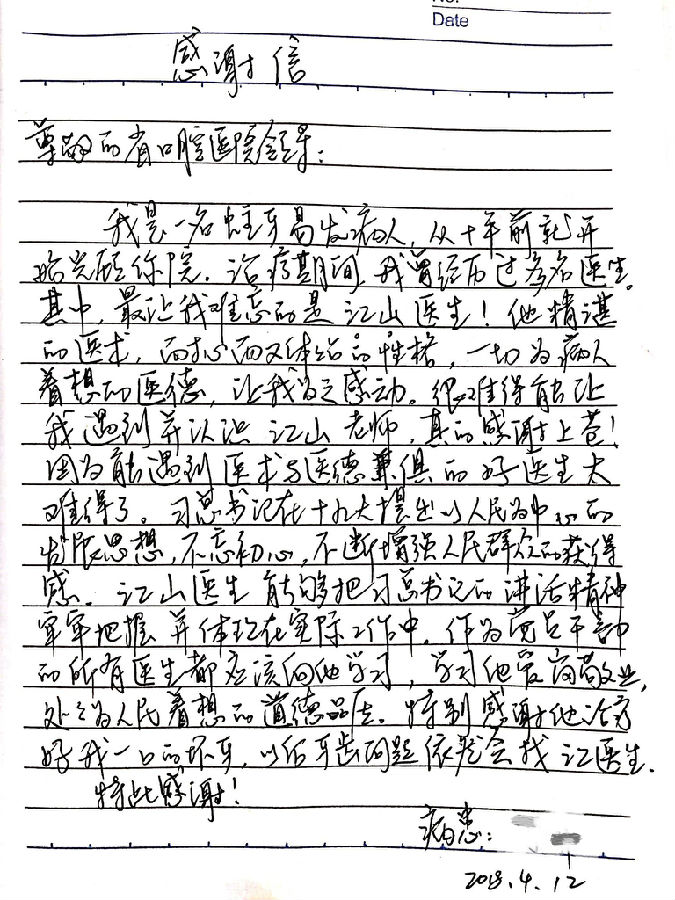 No.
Date
感谢信
尊敬的省口腔医院领导:
我是一名蛀牙易发病人,从十年前就开
始光顾你院.治疗期间,我曾经历过多名医生.
其中,最让我难忘的是江山医生!他精湛
的医术,而又体的性格,一切为病人
着想的医德,让我为之感动。很难得能让
我遇到并认识江山老师,真的感谢上苍!
因为能遇到医术与医德兼俱的好医生太
难得了。习总书记在十九大提出以人民为中心的
发展思想,不忘初心,不断增强人民群众的获得
感.江山医生能够把习总书记的讲话精神
牢牢把握并体现在实际工作中.作为党员干部
的所有医生都应该向他学习,学习他爱岗敬业,
处处为人民着想的道德品质.特别感谢他治疗
好我一口的坏牙,以后牙齿问题依然会找江医生.
特此感谢!
病患:
2018.4.12